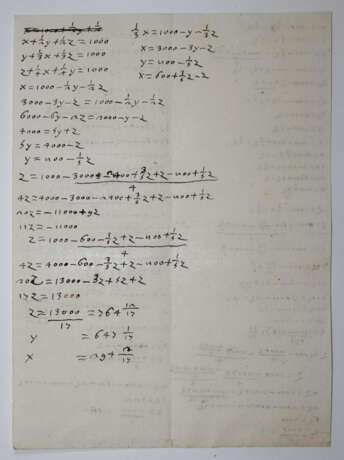 x+½y+½z=1000
y+⅓x+⅓z=1000
z+¼x+¼y=1000
x=1000-½y-½z
3000-3y-z=1000-½y-½z
6000-6y-2z=2000-y-z
4000=5y+z
5y=4000-z
y=800-⅕z
z=1000-3000-2400+⅗z+z-800+⅕z
4
4z=4000-3000-2400+⅗z+z-800+⅕z
20z=-11000+9z
11z=-11000
z=1000-600-⅗z+z-800+⅕z
4
4z=4000-600-⅗z+z-800+⅕z
20z=13000-3z+5z+z
17z=13000
z=13000/17=764 12/17
y =647 1/17
x =294 2/17
⅓x=1000-y-⅓z
x=3000-3y-z
y=800-⅕z
x=600+⅗z-z